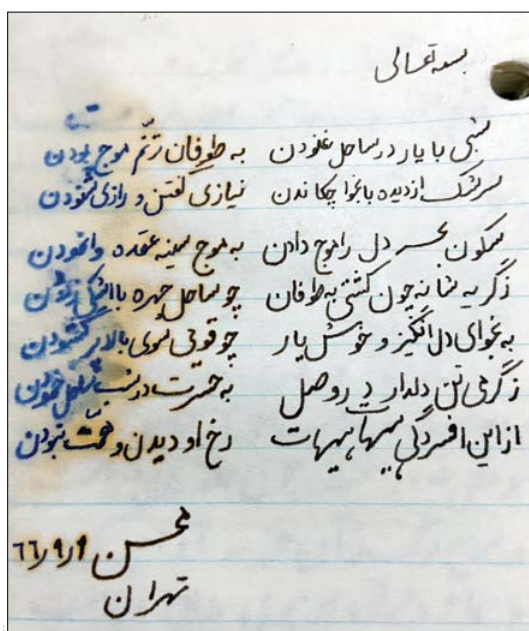 بسمه تعالی
شبی با یار در ساحل غنودن به طوفان ترنّم موج بودن
سرشک از دیده با نجوا چکاندن نیازی گفتن و رازی شنودن
سکون بحر دل را موج دادن به موج سینه عقده وانمودن
ز گریه شانه چون کشتی به طوفان چو ساحل چهره با اشک
به نجوای دل انگیز و خوش یار چو قوئی سوی بالا پر گشودن
ز گرمی تن دلدار در وصل به حسرت در شب ساحل
از این افسردگی هیهات هیهات رخ او دیدن و نبودن
محسن ۶۶٫۹٫۹
تهران